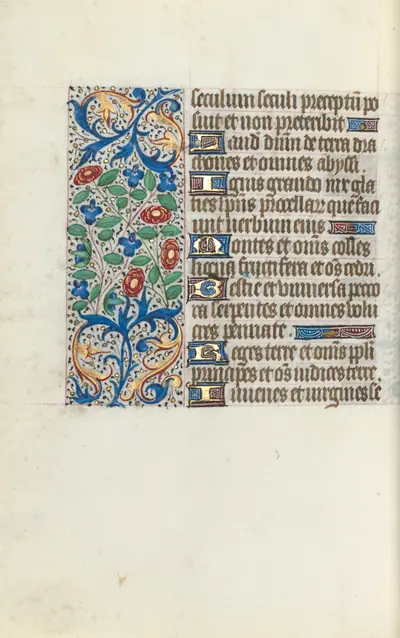 seculum seculi preceptū po
suit et non preteribit
Laud dūm de terra dra
chones et omnes abyssi.
Ignis grando nix gla
nes spūs procellar̄ que faci
unt verbum eius
Montes et om̄s colles
ligna fructifera et oēs cedri.
Bestie et universa peco
ra serpentes et omnes volu
cres pennate.
Reges terre et om̄is pp̄li
principes et oēs iudices terre.
Iuvenes et virgines se